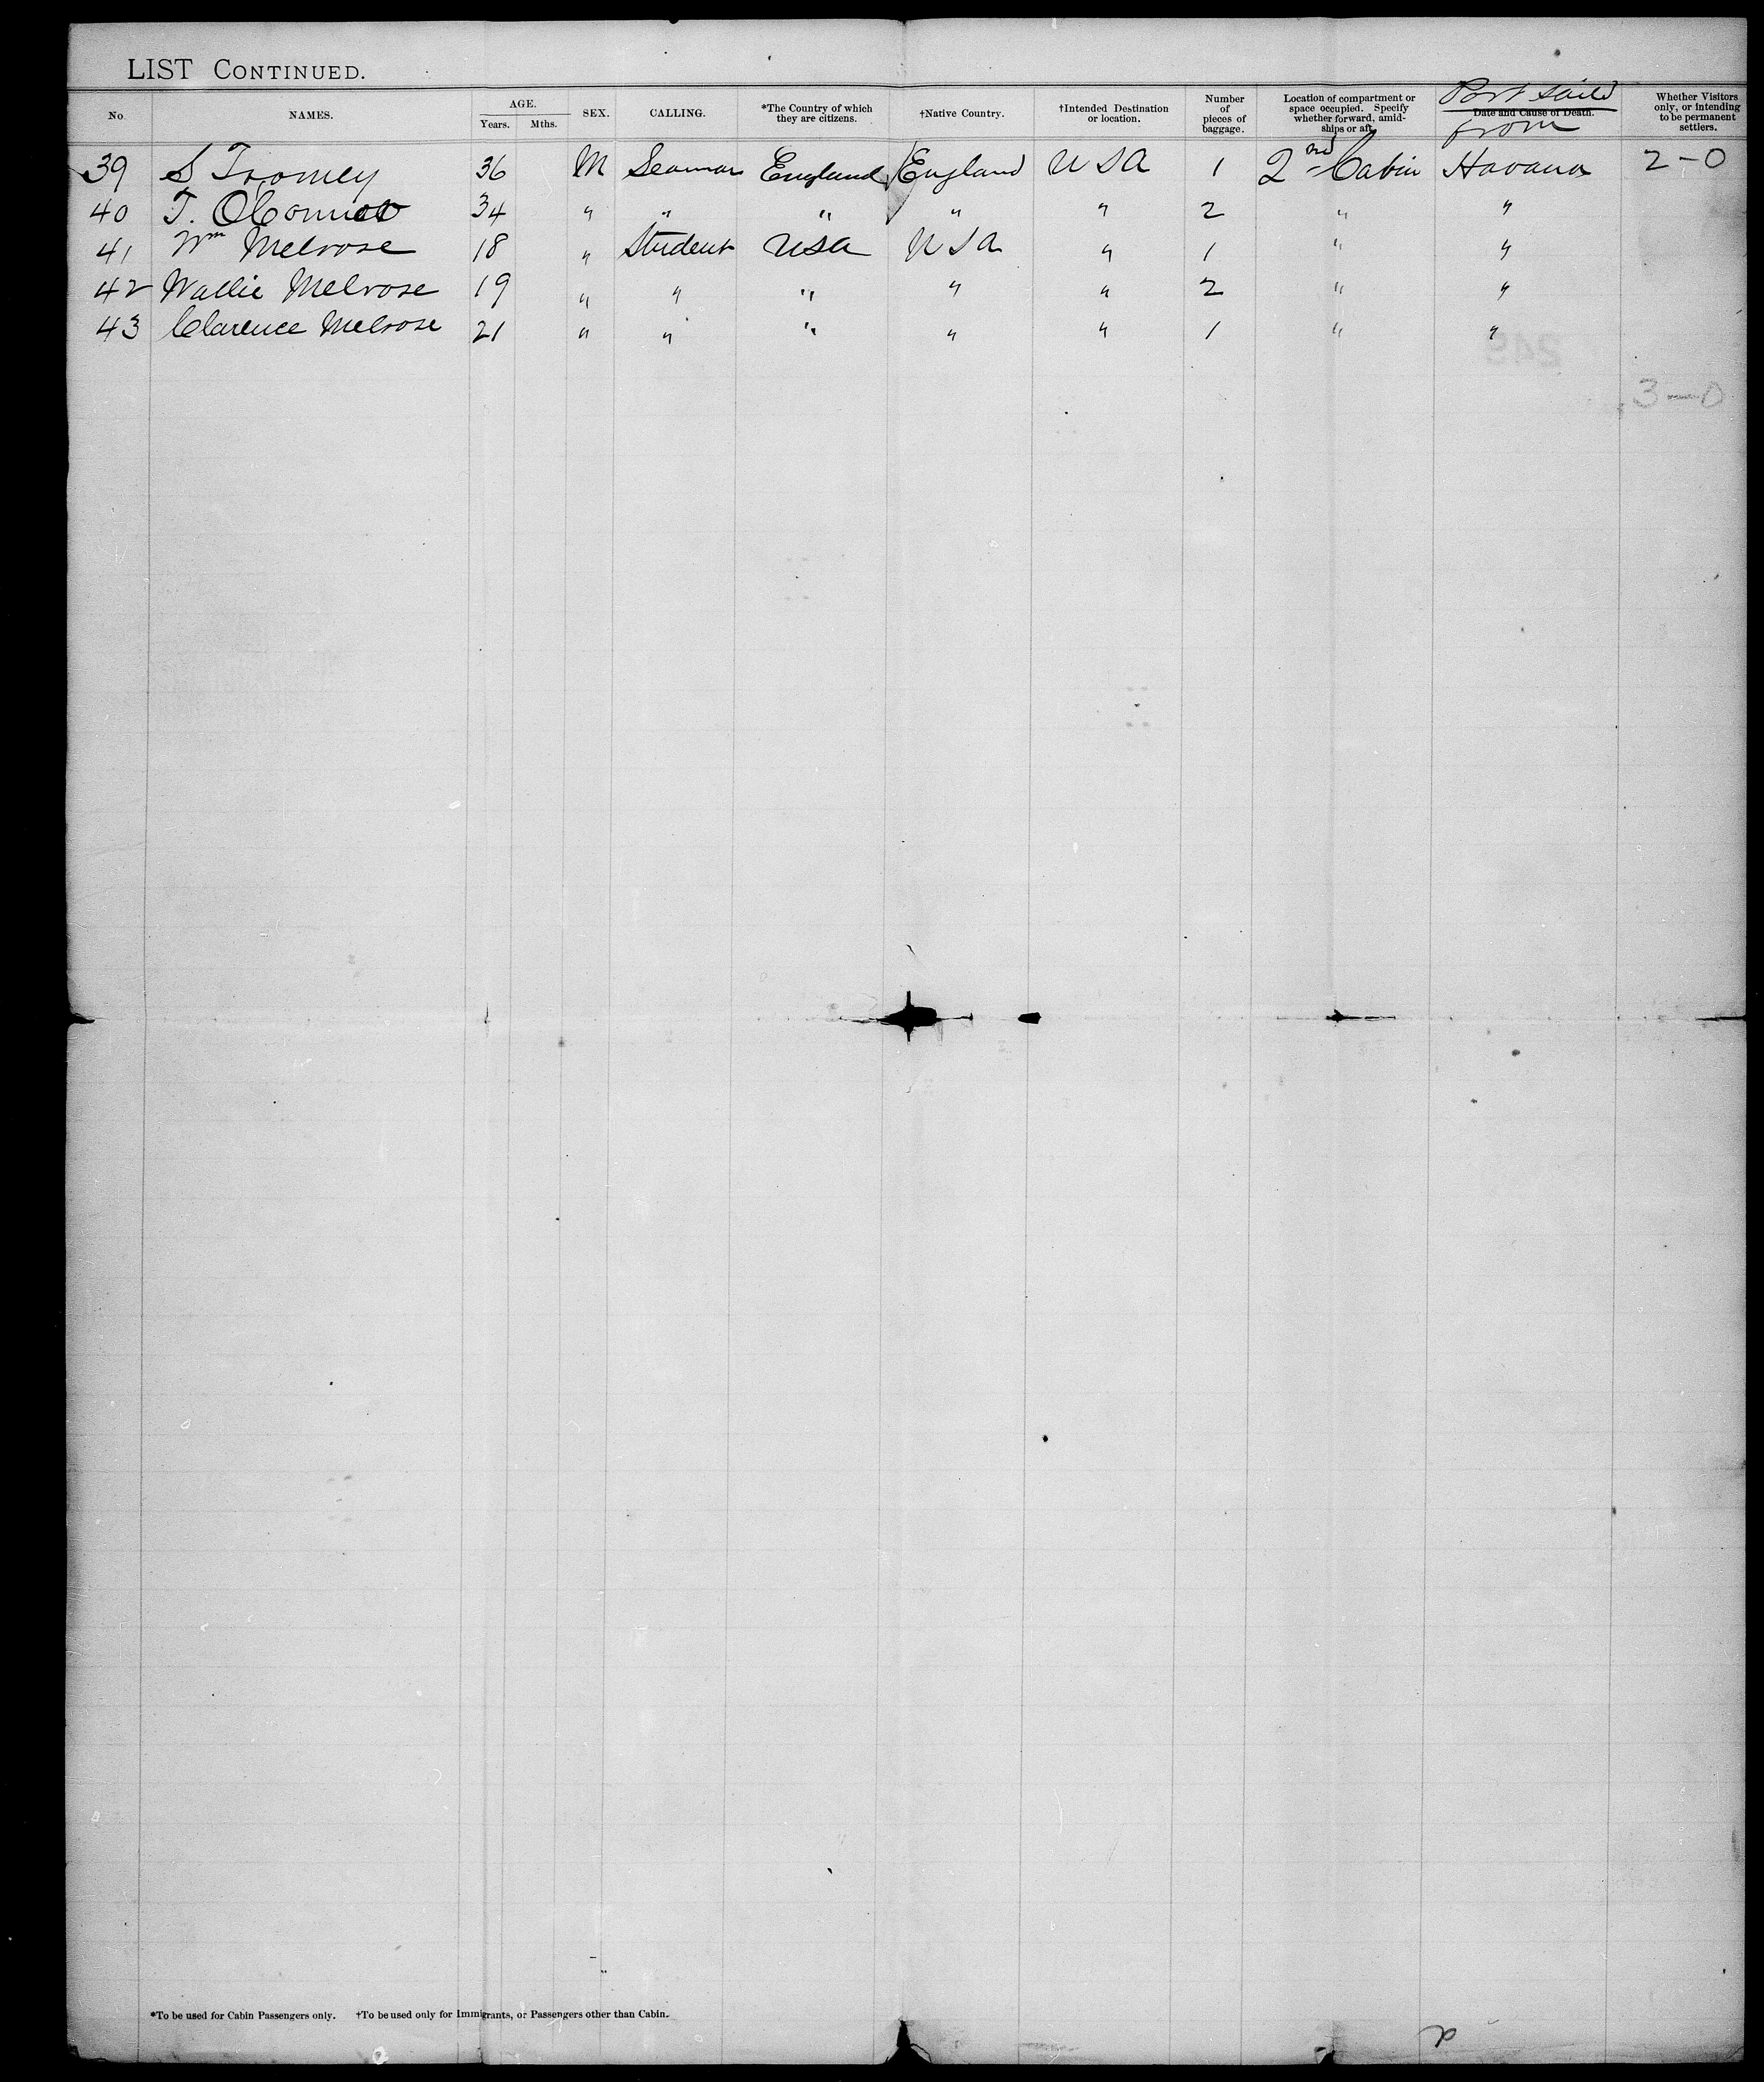 LIST CONTINUED.
No. NAMES. AGE. Years. Mths. SEX. CALLING. *The Country of which they are citizens. †Native Country. †Intended Destination or location. Number of pieces of baggage. Location of compartment or space occupied. Specify whether forward, amidships or aft. Port sailed from Date and Cause of Death. Whether Visitors only, or intending to be permanent settlers.
39 S Toomey 36 M Seaman England England USA 1 2nd Cabin Havana 2-0
40 T. OConnor 34 " " " " " 2 " "
41 Wm Melrose 18 " Student USA USA " 1 " "
42 Wallie Melrose 19 " " " " " 2 " "
43 Clarence Melrose 21 " " " " " 1 " "
3-0
*To be used for Cabin Passengers only. †To be used only for Immigrants, or Passengers other than Cabin.